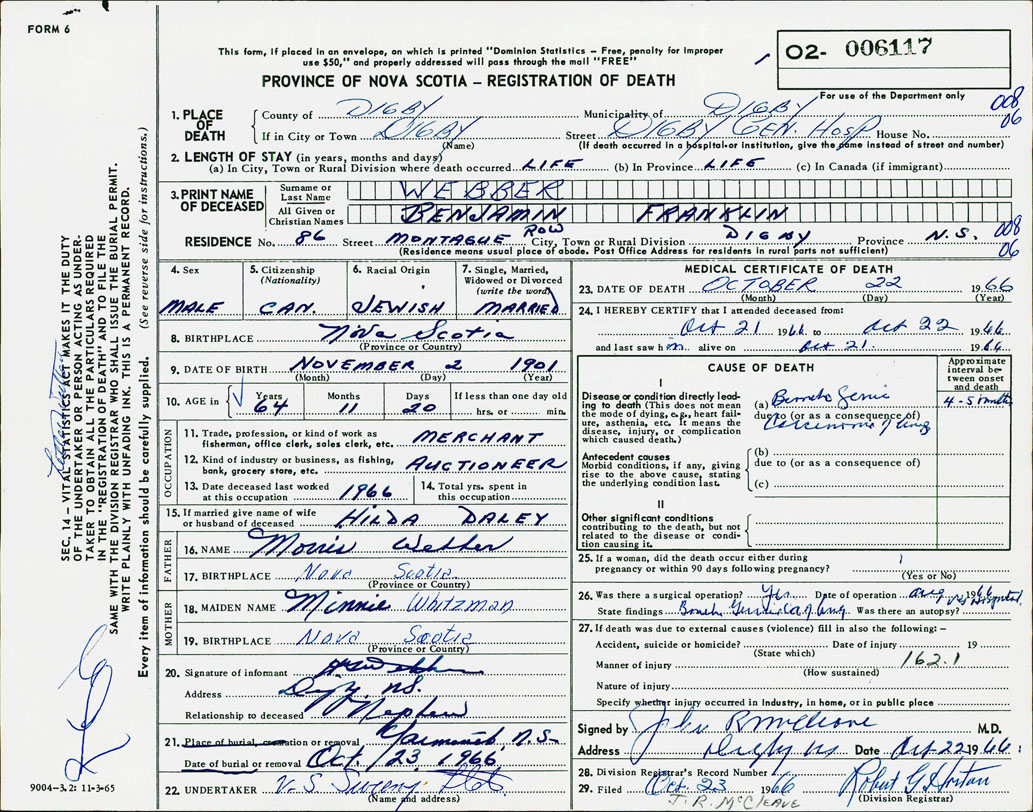 FORM 6
This form, if placed in an envelope, on which is printed "Dominion Statistics – Free, penalty for improper
use $50," and properly addressed will pass through the mail "FREE"
PROVINCE OF NOVA SCOTIA – REGISTRATION OF DEATH
02- 006117
For use of the Department only
008
06
1. PLACE OF DEATH
County of DIGBY Municipality of DIGBY
If in City or Town DIGBY Street DIGBY GEN. HOSP House No.
(Name) (If death occurred in a hospital or institution, give the name instead of street and number)
2. LENGTH OF STAY (in years, months and days)
(a) In City, Town or Rural Division where death occurred LIFE (b) In Province LIFE (c) In Canada (if immigrant)
3. PRINT NAME OF DECEASED
Surname or Last Name WEBBER
All Given or Christian Names BENJAMIN FRANKLIN
RESIDENCE No. 86 Street MONTAGUE ROW City, Town or Rural Division DIGBY Province N.S.
008
06
(Residence means usual place of abode. Post Office Address for residents in rural parts not sufficient)
4. Sex
MALE
5. Citizenship (Nationality)
CAN.
6. Racial Origin
JEWISH
7. Single, Married, Widowed or Divorced (write the word)
MARRIED
8. BIRTHPLACE Nova Scotia
(Province or Country)
9. DATE OF BIRTH NOVEMBER 2 1901
(Month) (Day) (Year)
10. AGE in Years 64 Months 11 Days 20 If less than one day old hrs. or min.
OCCUPATION
11. Trade, profession, or kind of work as fisherman, office clerk, sales clerk, etc. MERCHANT
12. Kind of industry or business, as fishing, bank, grocery store, etc. AUCTIONEER
13. Date deceased last worked at this occupation 1966
14. Total yrs. spent in this occupation
15. If married give name of wife or husband of deceased HILDA DALEY
FATHER
16. NAME Morris Webber
17. BIRTHPLACE Nova Scotia
(Province or Country)
MOTHER
18. MAIDEN NAME Minnie Whitzman
19. BIRTHPLACE Nova Scotia
(Province or Country)
20. Signature of informant
Address Digby, NS.
Relationship to deceased Nephew
21. Place of burial, cremation or removal Yarmouth N.S.
Date of burial or removal Oct. 23 1966
22. UNDERTAKER V. S. Sweeny
(Name and address)
MEDICAL CERTIFICATE OF DEATH
23. DATE OF DEATH OCTOBER 22 1966
(Month) (Day) (Year)
24. I HEREBY CERTIFY that I attended deceased from:
Oct 21 1966 to Oct 22 1966
and last saw him alive on Oct 21. 1966
CAUSE OF DEATH
Approximate interval between onset and death
I
Disease or condition directly leading to death (This does not mean the mode of dying, e.g., heart failure, asthenia, etc. It means the disease, injury, or complication which caused death.)
(a) Bronchogenic 4-5 months
due to (or as a consequence of)
Carcinoma of lung
Antecedent causes
Morbid conditions, if any, giving rise to the above cause, stating the underlying condition last.
(b)
due to (or as a consequence of)
(c)
II
Other significant conditions contributing to the death, but not related to the disease or condition causing it.
25. If a woman, did the death occur either during pregnancy or within 90 days following pregnancy?
(Yes or No)
26. Was there a surgical operation? Yes Date of operation Aug 1966
State findings Was there an autopsy?
27. If death was due to external causes (violence) fill in also the following: –
Accident, suicide or homicide? Date of injury 19
(State which)
Manner of injury 162.1
(How sustained)
Nature of injury
Specify whether injury occurred in Industry, in home, or in public place
Signed by M.D.
Address Digby NS Date Oct 22 1966
28. Division Registrar's Record Number
29. Filed Oct. 23 1966 Robert G. Horton
J. R. McCleave (Division Registrar)
SEC. 14 – VITAL STATISTICS ACT MAKES IT THE DUTY
OF THE UNDERTAKER OR PERSON ACTING AS UNDER-
TAKER TO OBTAIN ALL THE PARTICULARS REQUIRED
IN THE "REGISTRATION OF DEATH" AND TO FILE THE
SAME WITH THE DIVISION REGISTRAR WHO SHALL ISSUE THE BURIAL PERMIT.
WRITE PLAINLY WITH UNFADING INK. THIS IS A PERMANENT RECORD.
Every item of information should be carefully supplied. (See reverse side for instructions.)
9004–3.2: 11-3-65